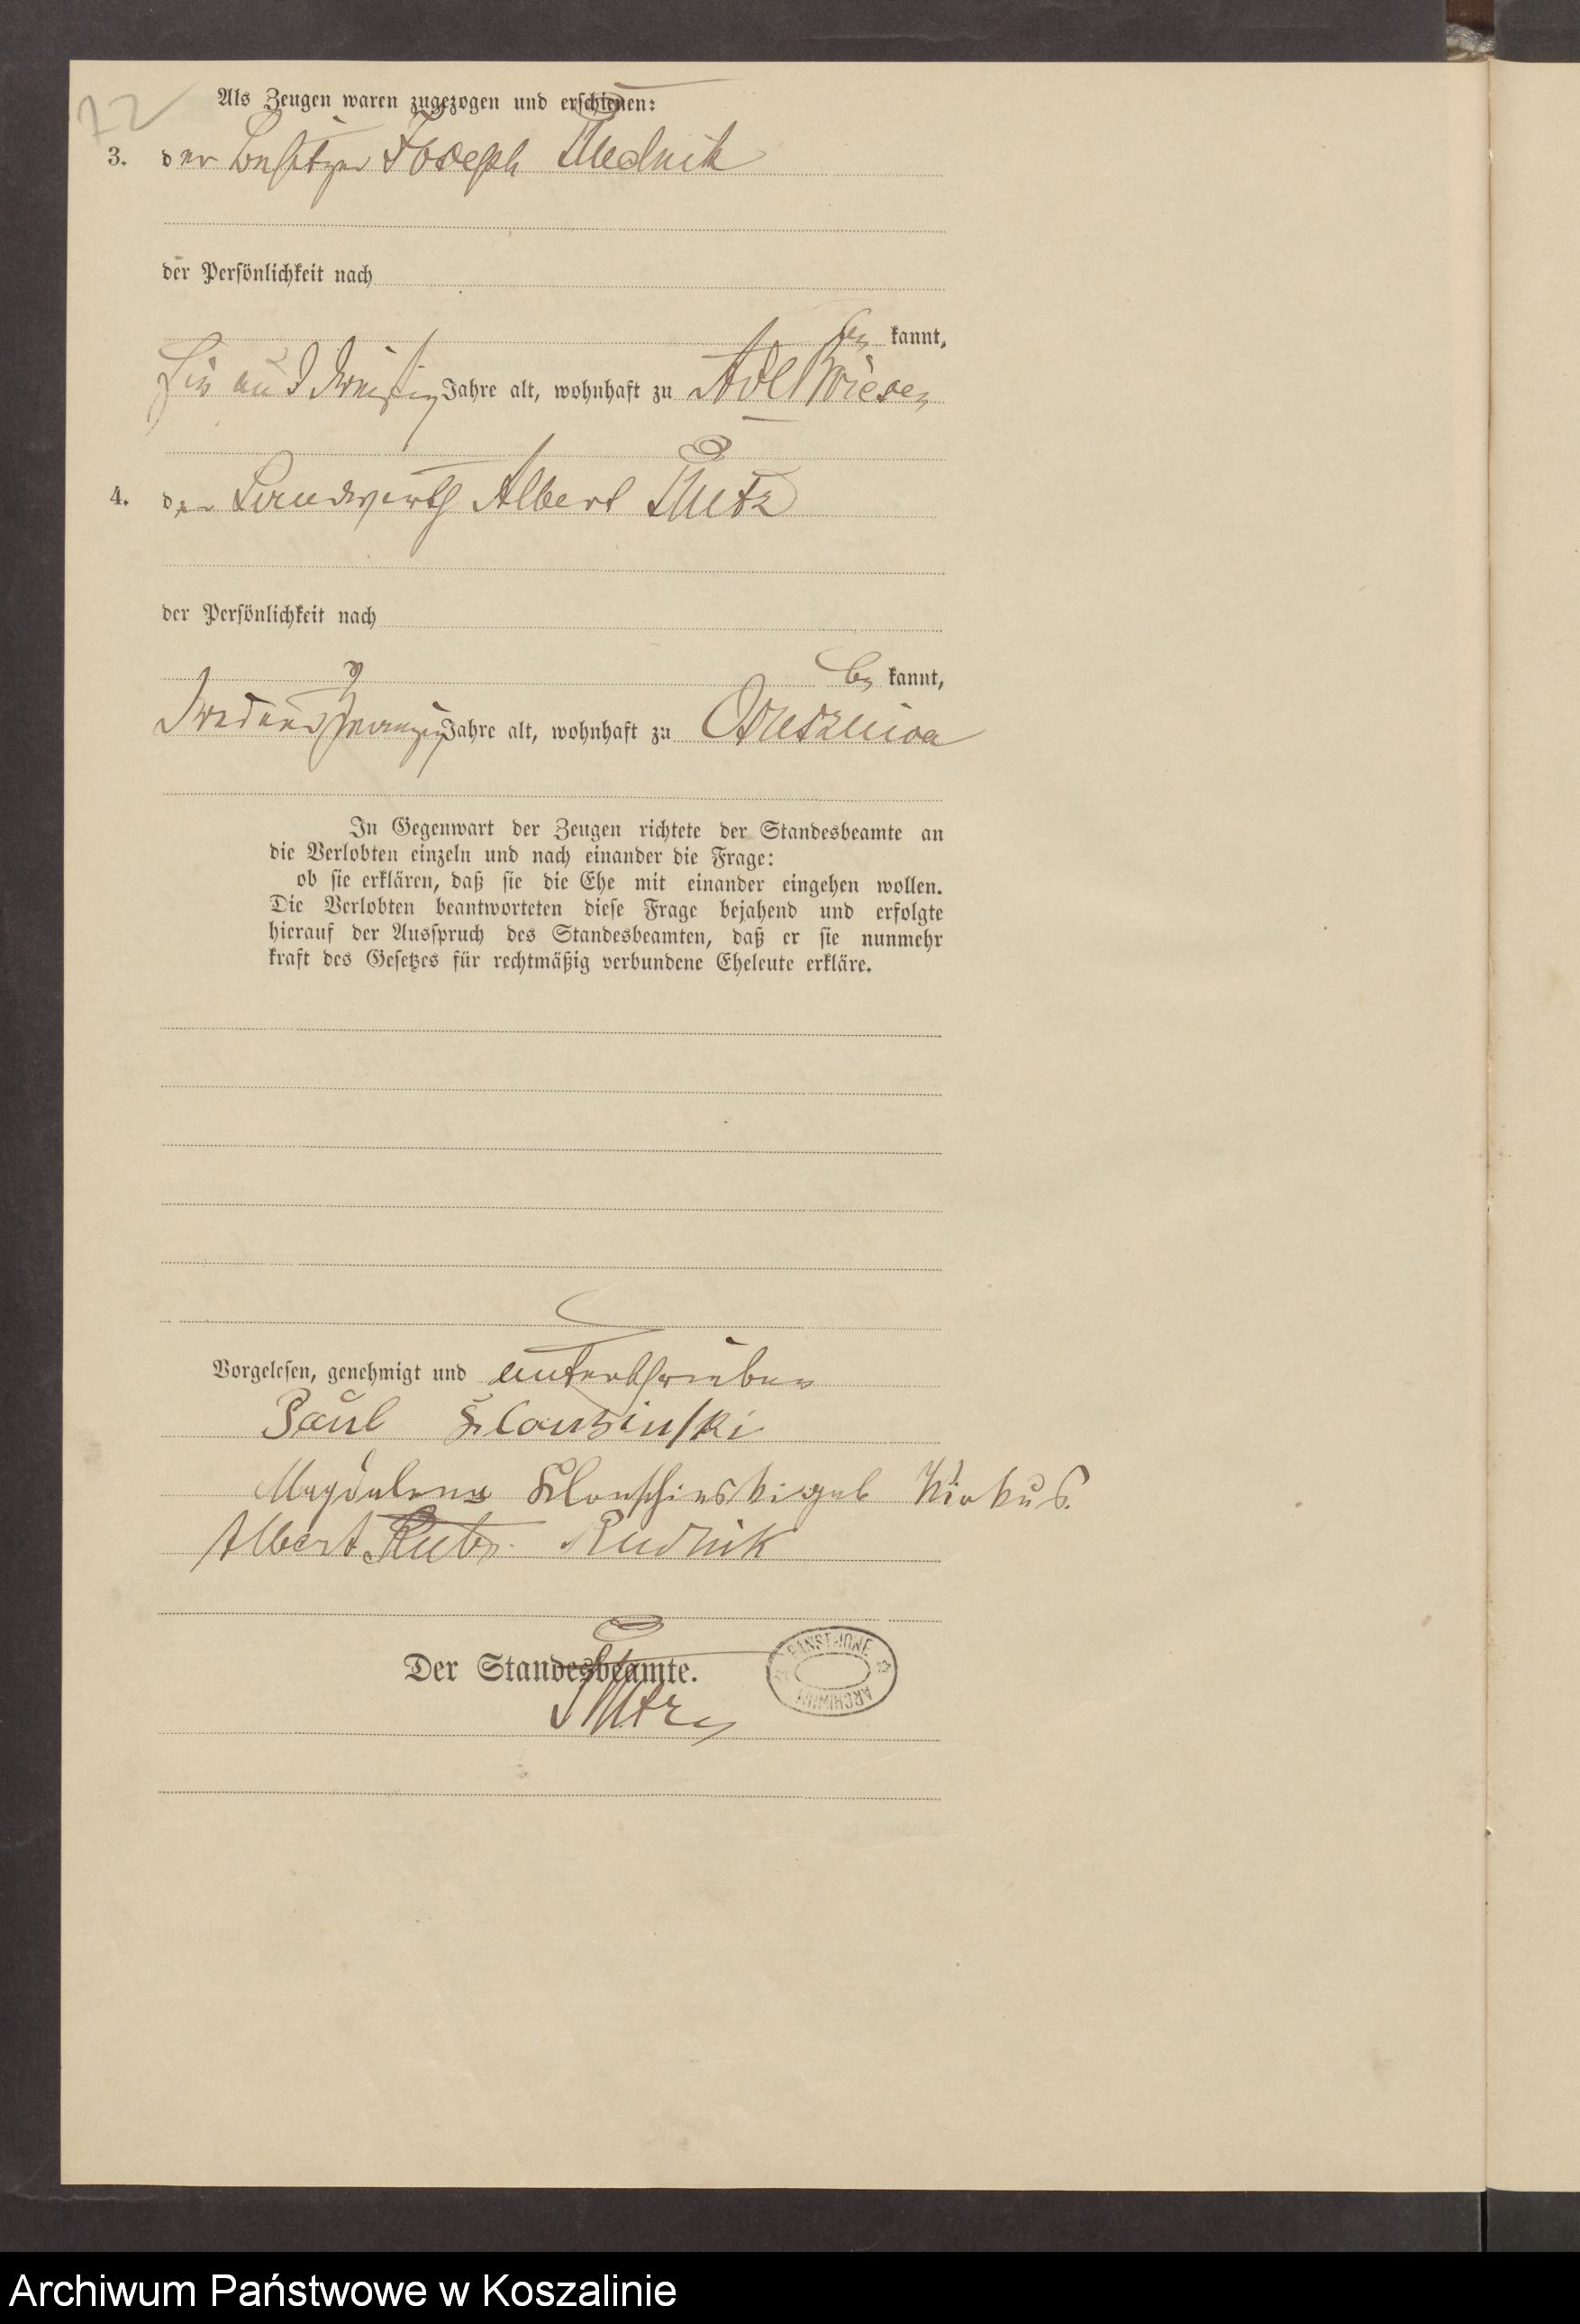 72
Als Zeugen waren zugezogen und erschienen:
3. der Besitzer Joseph Rudnik
der Persönlichkeit nach
be kannt,
Ein und dreißig Jahre alt, wohnhaft zu Adl Briesen
4. der Landwirth Albert Rutz
der Persönlichkeit nach
be kannt,
Zwei und zwanzig Jahre alt, wohnhaft zu Ostuszewa
In Gegenwart der Zeugen richtete der Standesbeamte an
die Verlobten einzeln und nach einander die Frage:
ob sie erklären, daß sie die Ehe mit einander eingehen wollen.
Die Verlobten beantworteten diese Frage bejahend und erfolgte
hierauf der Ausspruch des Standesbeamten, daß er sie nunmehr
kraft des Gesetzes für rechtmäßig verbundene Eheleute erkläre.
Vorgelesen, genehmigt und unterschrieben
Paul Klonsinski
Magdalena Klonschinski geb Kiokus.
Albert Rutz. Rudnik
Der Standesbeamte.
Rutz
PANSTWOWE
ARCHIWUM
Archiwum Państwowe w Koszalinie